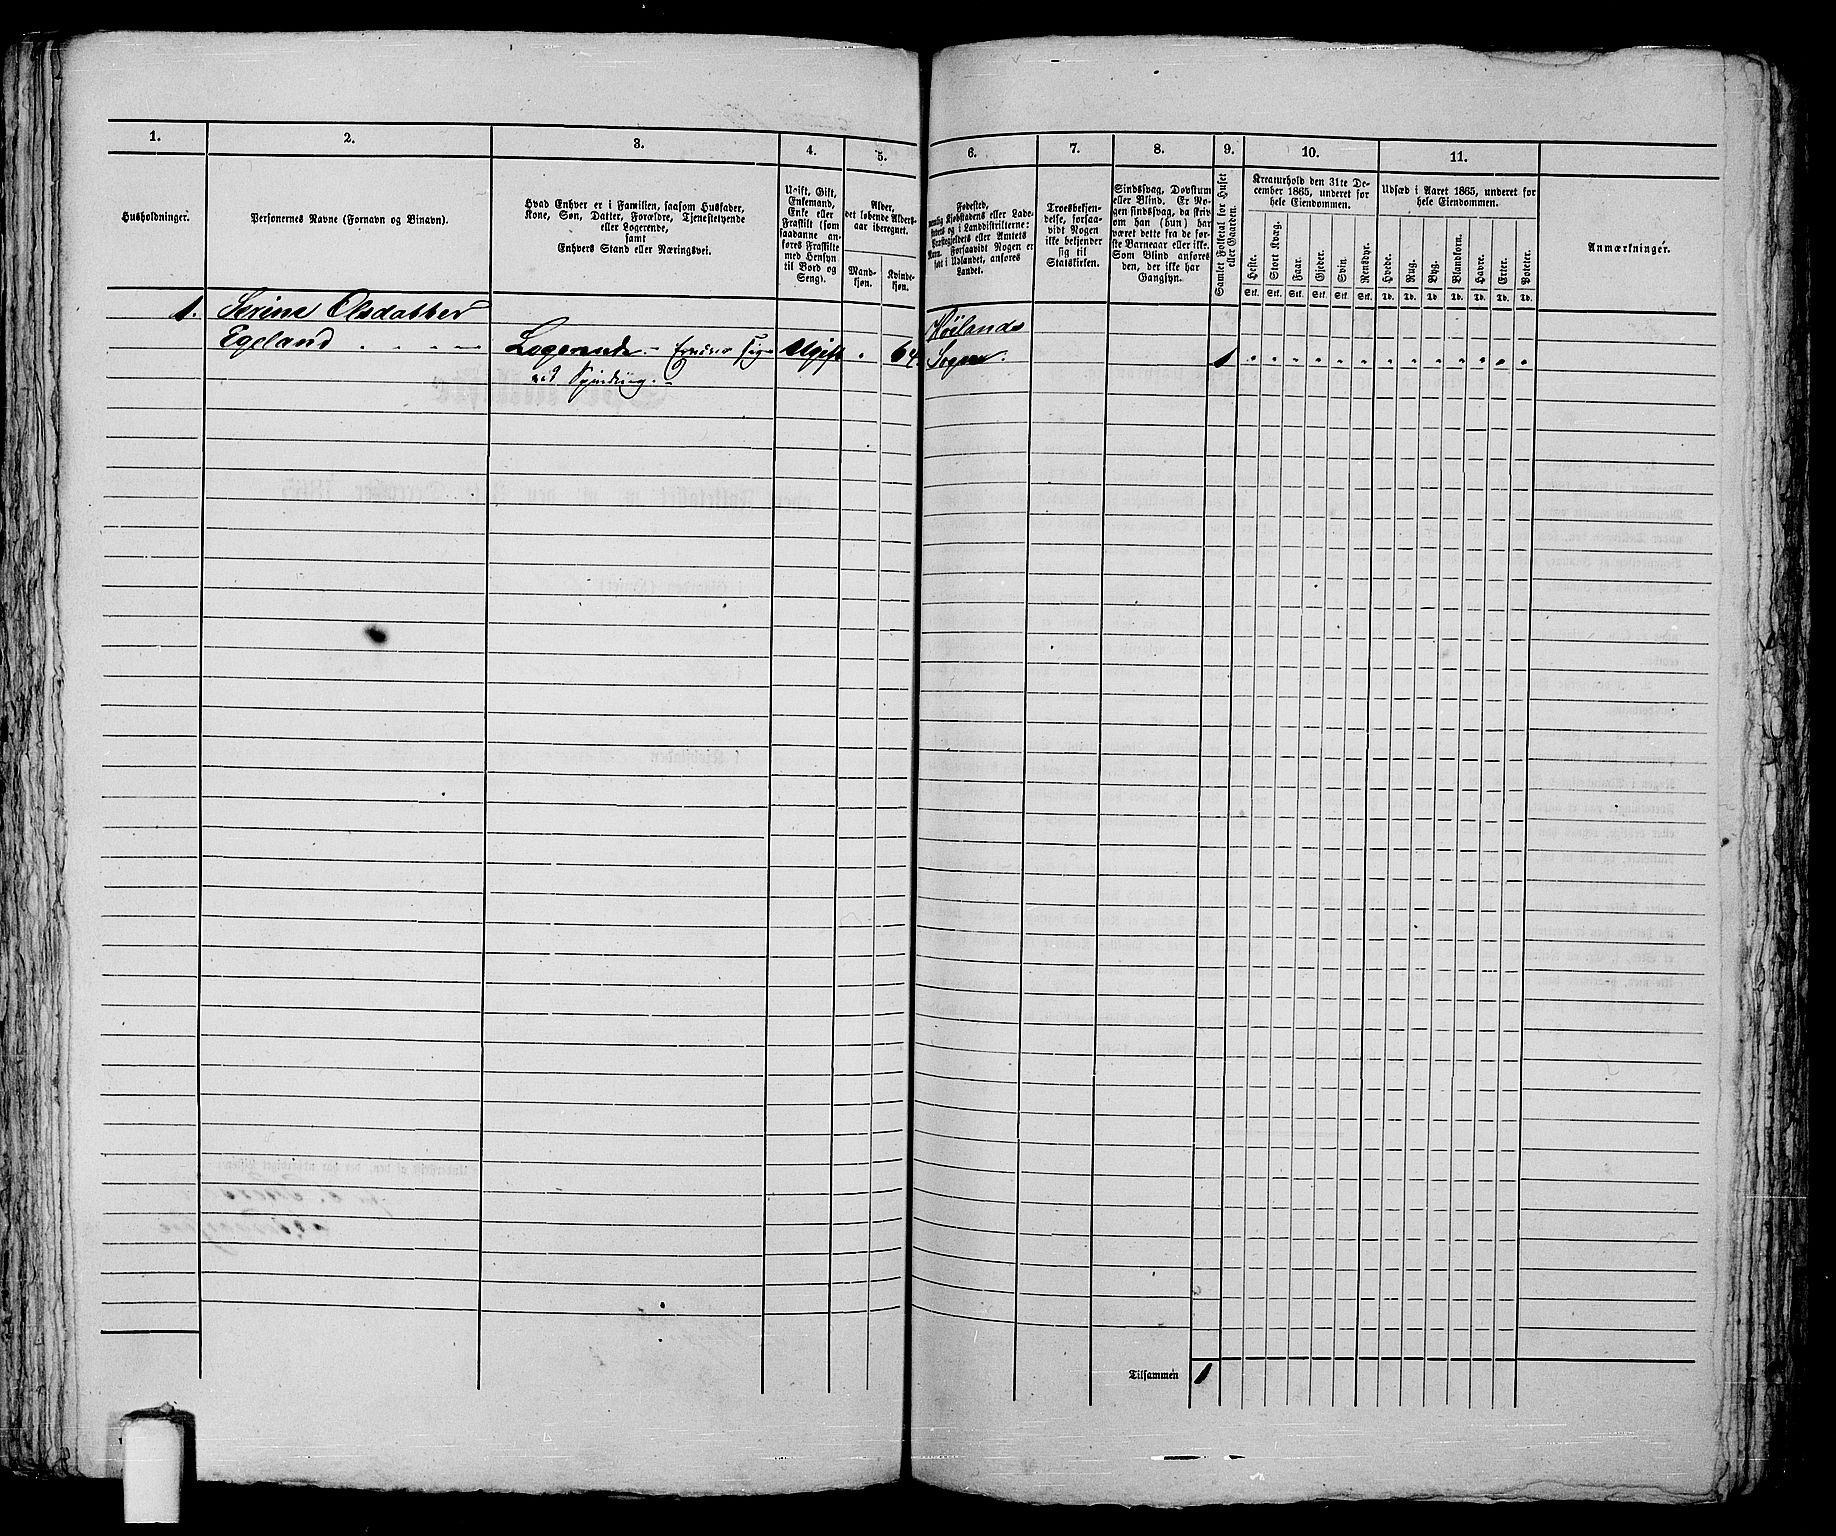 1. 2. 3. 4. 5. 6. 7. 8. 9. 10. 11.
Husholdninger.
Personernes Navne (Fornavn og Binavn).
Hvad Enhver er i Familien, saasom Husfader,
Kone, Søn, Datter, Forældre, Tjenestetyende
eller Logerende,
samt
Enhvers Stand eller Næringsvei.
Ugift, Gift,
Enkemand,
Enke eller
Fraskilt (som
saadanne an-
føres Fraskilte
med Hensyn
til Bord og
Seng).
Alder,
det løbende Alders-
aar iberegnet.
Mand-
kjøn.
Kvinde-
kjøn.
Fødested,
nemlig Kjøbstadens eller Lade-
stedets og i Landdistrikterne:
Præstegjeldets eller Amtets
Navn. Forsaavidt Nogen er
født i Udlandet, anføres
Landet.
Troesbekjen-
delse, forsaa-
vidt Nogen
ikke bekjender
sig til
Statskirken.
Sindssvag, Døvstum
eller Blind. Er No-
gen sindssvag, da skriv
om han (hun) har
været dette fra de før-
ste Barneaar eller ikke.
Som Blind anføres
den, der ikke har
Gangsyn.
Samlet Folketal for Huset
eller Gaarden.
Kreaturhold den 31te De-
cember 1865, underet for
hele Eiendommen.
Heste. Stort Kvæg. Faar. Gjeder. Svin. Rensdyr.
Stk. Stk. Stk. Stk. Stk. Stk.
Udsæd i Aaret 1865, underet for
hele Eiendommen.
Hvede. Rug. Byg. Blandkorn. Havre. Erter. Poteter.
Td. Td. Td. Td. Td. Td. Td.
Anmærkninger.
1. Serine Olsdatter Høilands
Egeland Logerende - Ugift 64 Sogn 1
ved Spinding.
Tilsammen 1